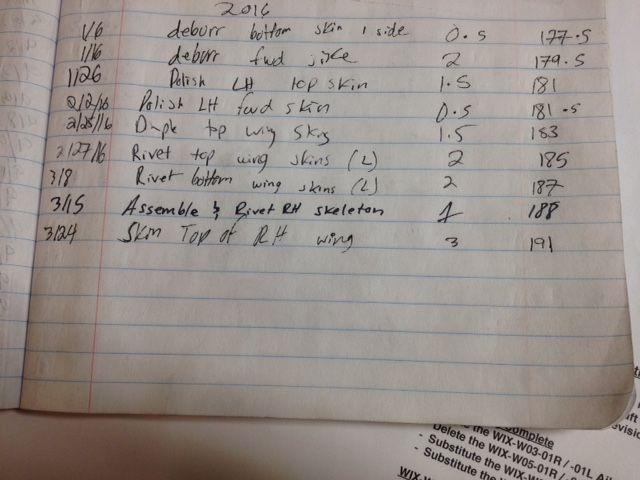 2016
1/6 deburr bottom skin 1 side 0.5 177.5
1/16 deburr fwd 2 179.5
1/26 Polish LH top skin 1.5 181
2/2/16 Polish LH fwd skin 0.5 181.5
2/25/16 top wing skins 1.5 183
2/27/16 Rivet top wing skins (L) 2 185
3/8 Rivet bottom wing skins (L) 2 187
3/15 Assemble & Rivet RH skeleton 1 188
3/24 Skin Top of RH wing 3 191
Complete
the WIX-W03-01R / -01L
Delete the WIX-W05-01R /
- Substitute the
- Substitute the